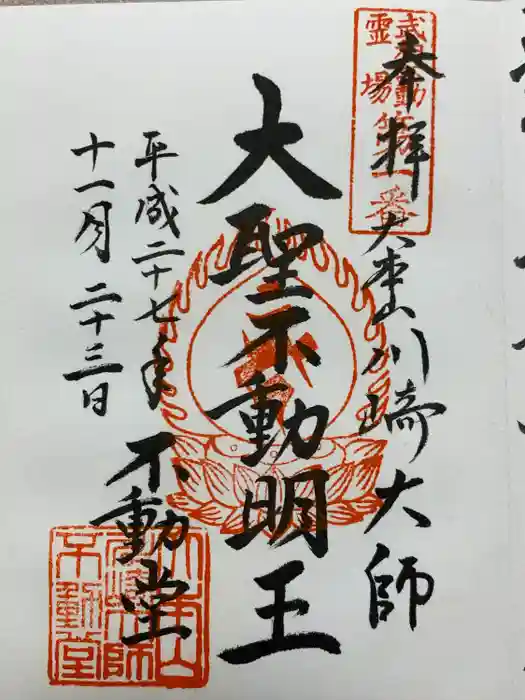 武相不動
霊場
第一番
奉拝
大本山川崎大師
大聖不動明王
平成二十七年
十一月二十三日
不動堂
大本山
川崎大師
不動堂